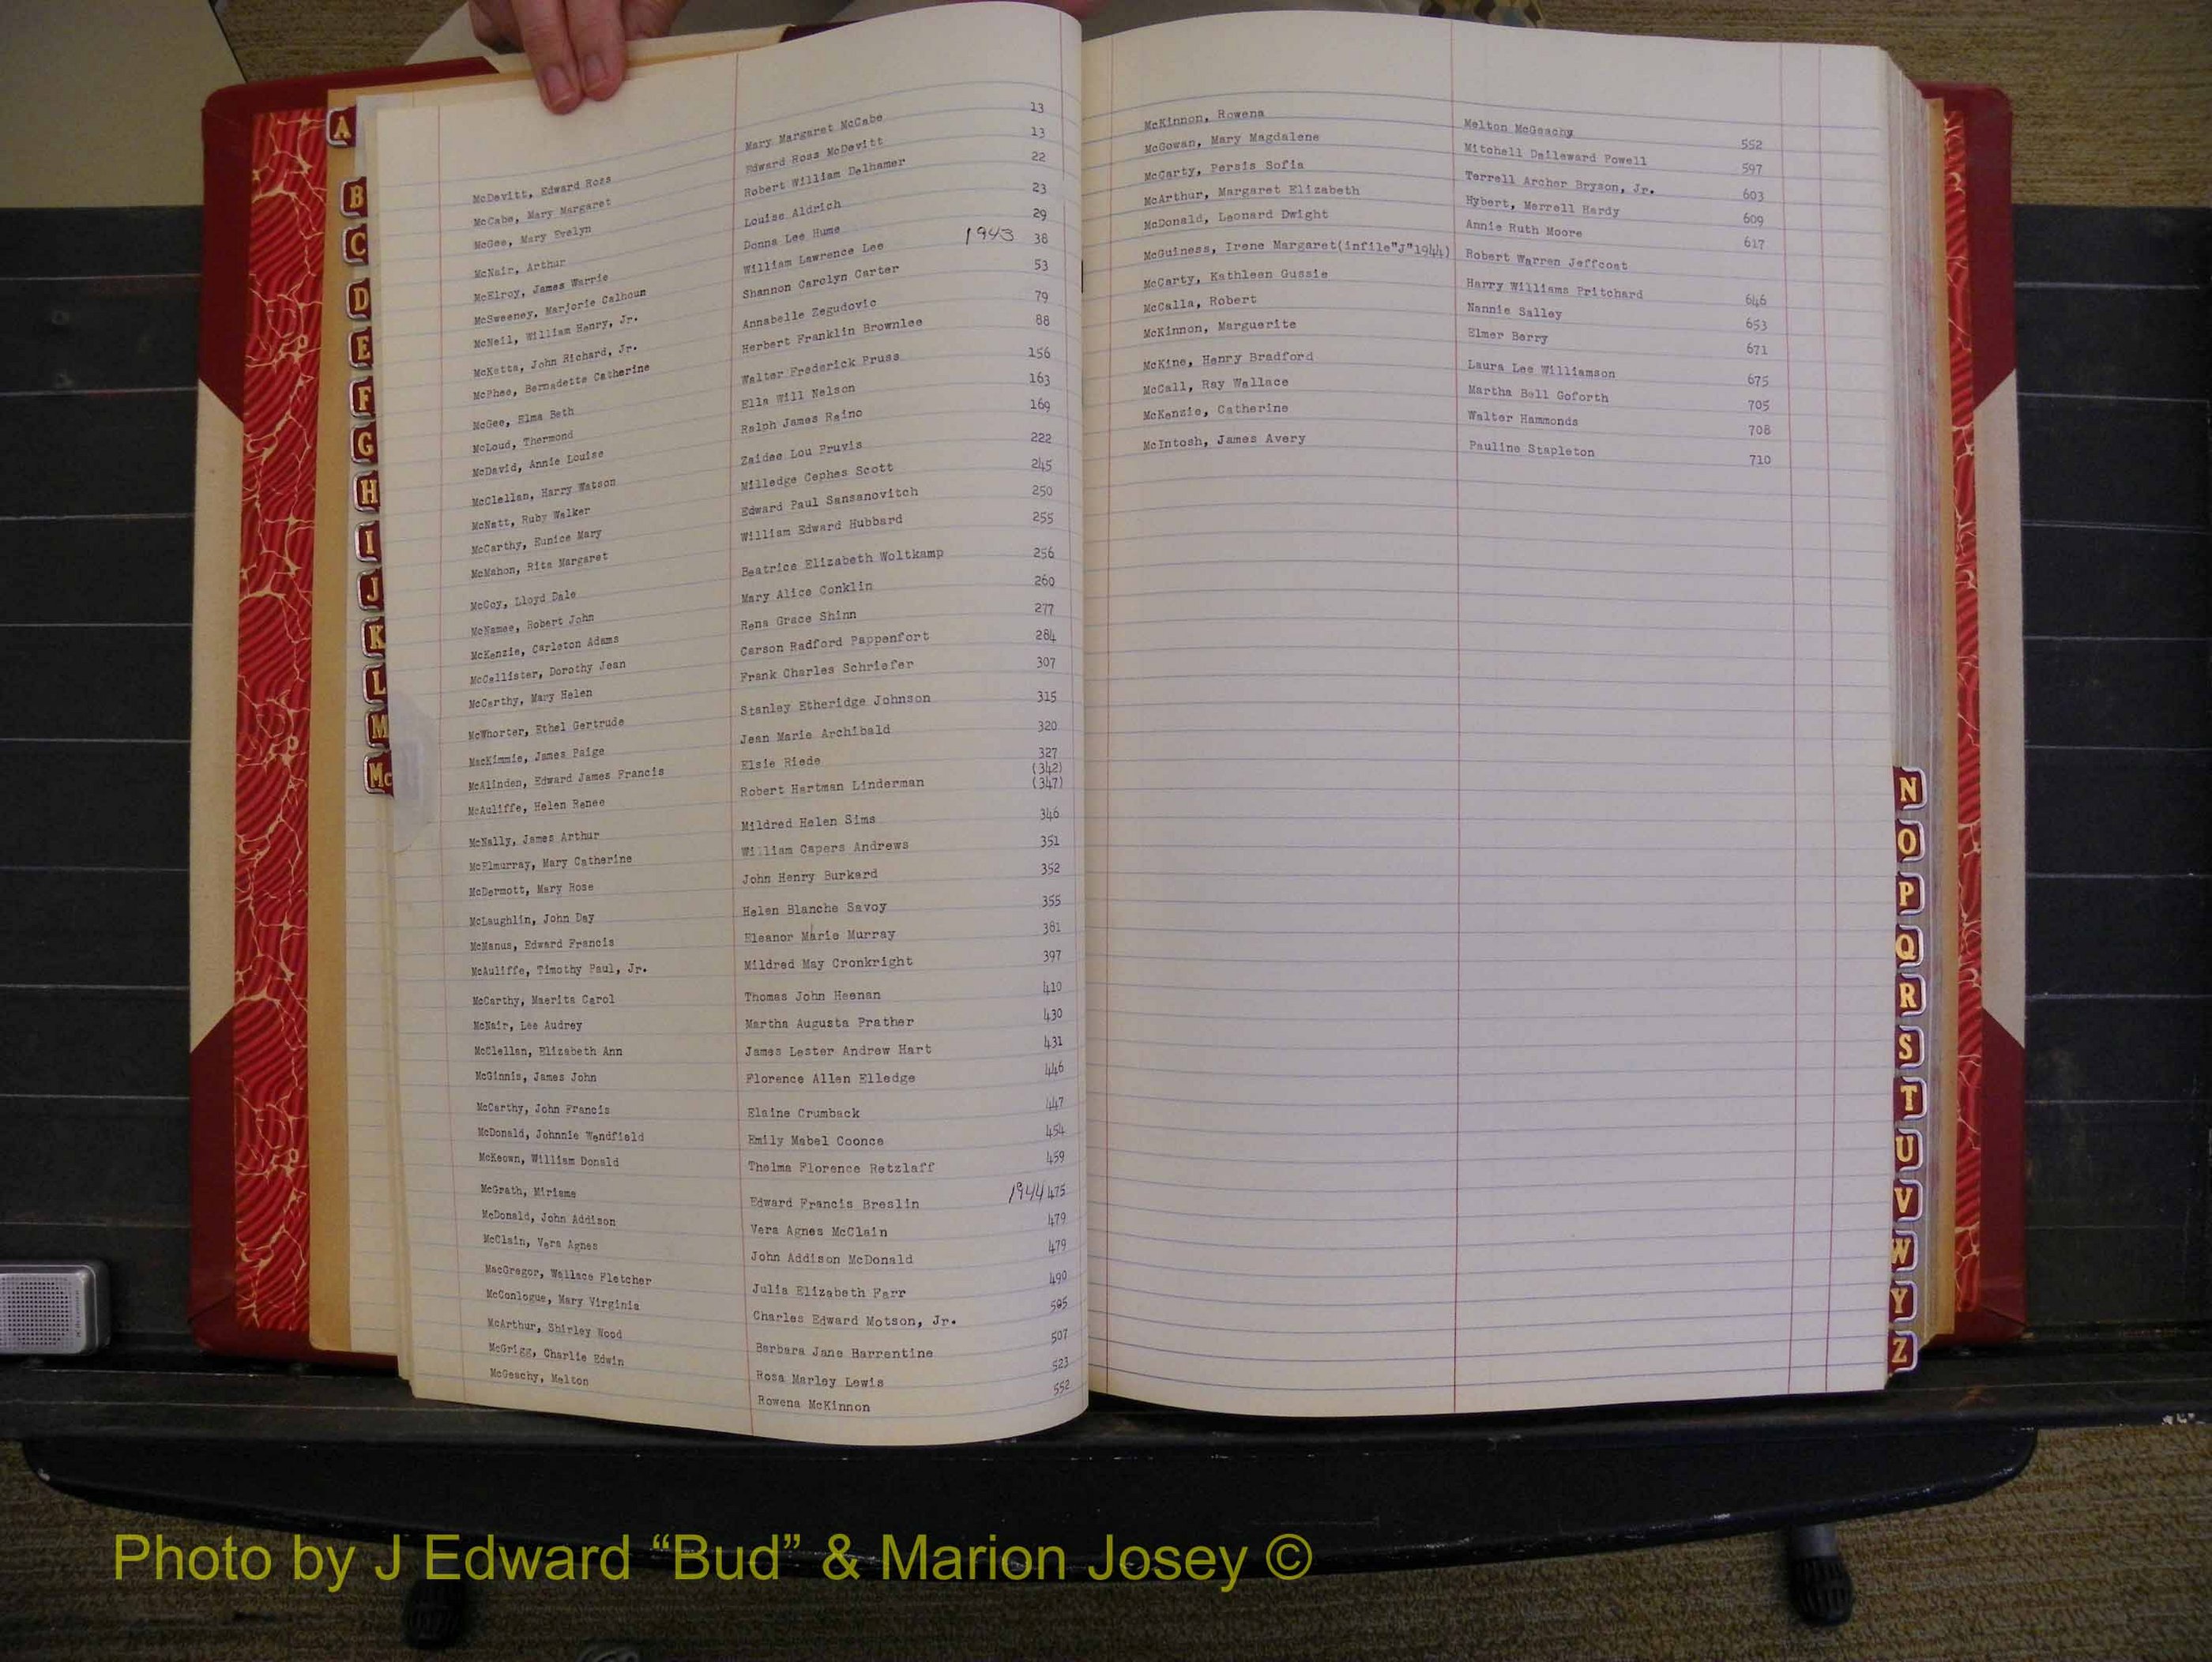 McDevitt, Edward Ross Mary Margaret McCabe 13
McCabe, Mary Margaret Edward Ross McDevitt 13
McGee, Mary Evelyn Robert William Delhamer 22
McNair, Arthur Louise Aldrich 23
McElroy, James Warrie Donna Lee Hume 29
McSweeney, Marjorie Calhoun William Lawrence Lee 1943 38
McNeil, William Henry, Jr. Shannon Carolyn Carter 53
McKetta, John Richard, Jr. Annabelle Zegudovic 79
McPhee, Bernadette Catherine Herbert Franklin Brownlee 88
McGee, Elma Beth Walter Frederick Pruss 156
McLoud, Thermond Ella Will Nelson 163
McDavid, Annie Louise Ralph James Raino 169
McClellan, Harry Watson Zaidee Lou Pruvis 222
McNatt, Ruby Walker Milledge Cephes Scott 245
McCarthy, Eunice Mary Edward Paul Sansanovitch 250
McMahon, Rita Margaret William Edward Hubbard 255
McCoy, Lloyd Dale Beatrice Elizabeth Woltkamp 256
McNamee, Robert John Mary Alice Conklin 260
McKenzie, Carleton Adams Rena Grace Shinn 277
McCallister, Dorothy Jean Carson Radford Pappenfort 284
McCarthy, Mary Helen Frank Charles Schriefer 307
McWhorter, Ethel Gertrude Stanley Etheridge Johnson 315
MacKimmie, James Paige Jean Marie Archibald 320
McAlinden, Edward James Francis Elsie Riede 327
(342)
McAuliffe, Helen Renee Robert Hartman Linderman (347)
McNally, James Arthur Mildred Helen Sims 346
McElmurray, Mary Catherine William Capers Andrews 351
McDermott, Mary Rose John Henry Burkard 352
McLaughlin, John Day Helen Blanche Savoy 355
McManus, Edward Francis Eleanor Marie Murray 381
McAuliffe, Timothy Paul, Jr. Mildred May Cronkright 397
McCarthy, Maerita Carol Thomas John Heenan 410
McNair, Lee Audrey Martha Augusta Prather 430
McClellan, Elizabeth Ann James Lester Andrew Hart 431
McGinnis, James John Florence Allen Elledge 446
McCarthy, John Francis Elaine Crumback 447
McDonald, Johnnie Wendfield Emily Mabel Coonce 454
McKeown, William Donald Thelma Florence Retzlaff 459
McGrath, Miriame Edward Francis Breslin 1944 475
McDonald, John Addison Vera Agnes McClain 479
McClain, Vera Agnes John Addison McDonald 479
MacGregor, Wallace Fletcher Julia Elizabeth Farr 490
McConlogue, Mary Virginia Charles Edward Motson, Jr. 505
McArthur, Shirley Wood Barbara Jane Harrentine 507
McGrigg, Charlie Edwin Rosa Marley Lewis 523
McGeachy, Melton Rowena McKinnon 552
McKinnon, Rowena Melton McGeachy 552
McGowan, Mary Magdalene Mitchell Dalleward Powell 597
McCarty, Persis Sofia Terrell Archer Bryson, Jr. 603
McArthur, Margaret Elizabeth Hybert, Merrell Hardy 609
McDonald, Leonard Dwight Annie Ruth Moore 617
McGuiness, Irene Margaret(infile"J"1944) Robert Warren Jeffcoat
McCarty, Kathleen Gussie Harry Williams Pritchard 646
McCalla, Robert Nannie Salley 653
McKinnon, Marguerite Elmer Berry 671
McKine, Henry Bradford Laura Lee Williamson 675
McCall, Ray Wallace Martha Bell Goforth 705
McKenzie, Catherine Walter Hammonds 708
McIntosh, James Avery Pauline Stapleton 710
A
B
C
D
E
F
G
H
I
J
K
L
M
Mc
N
O
P
Q
R
S
T
U
V
W
Y
Z
Photo by J Edward “Bud” & Marion Josey ©